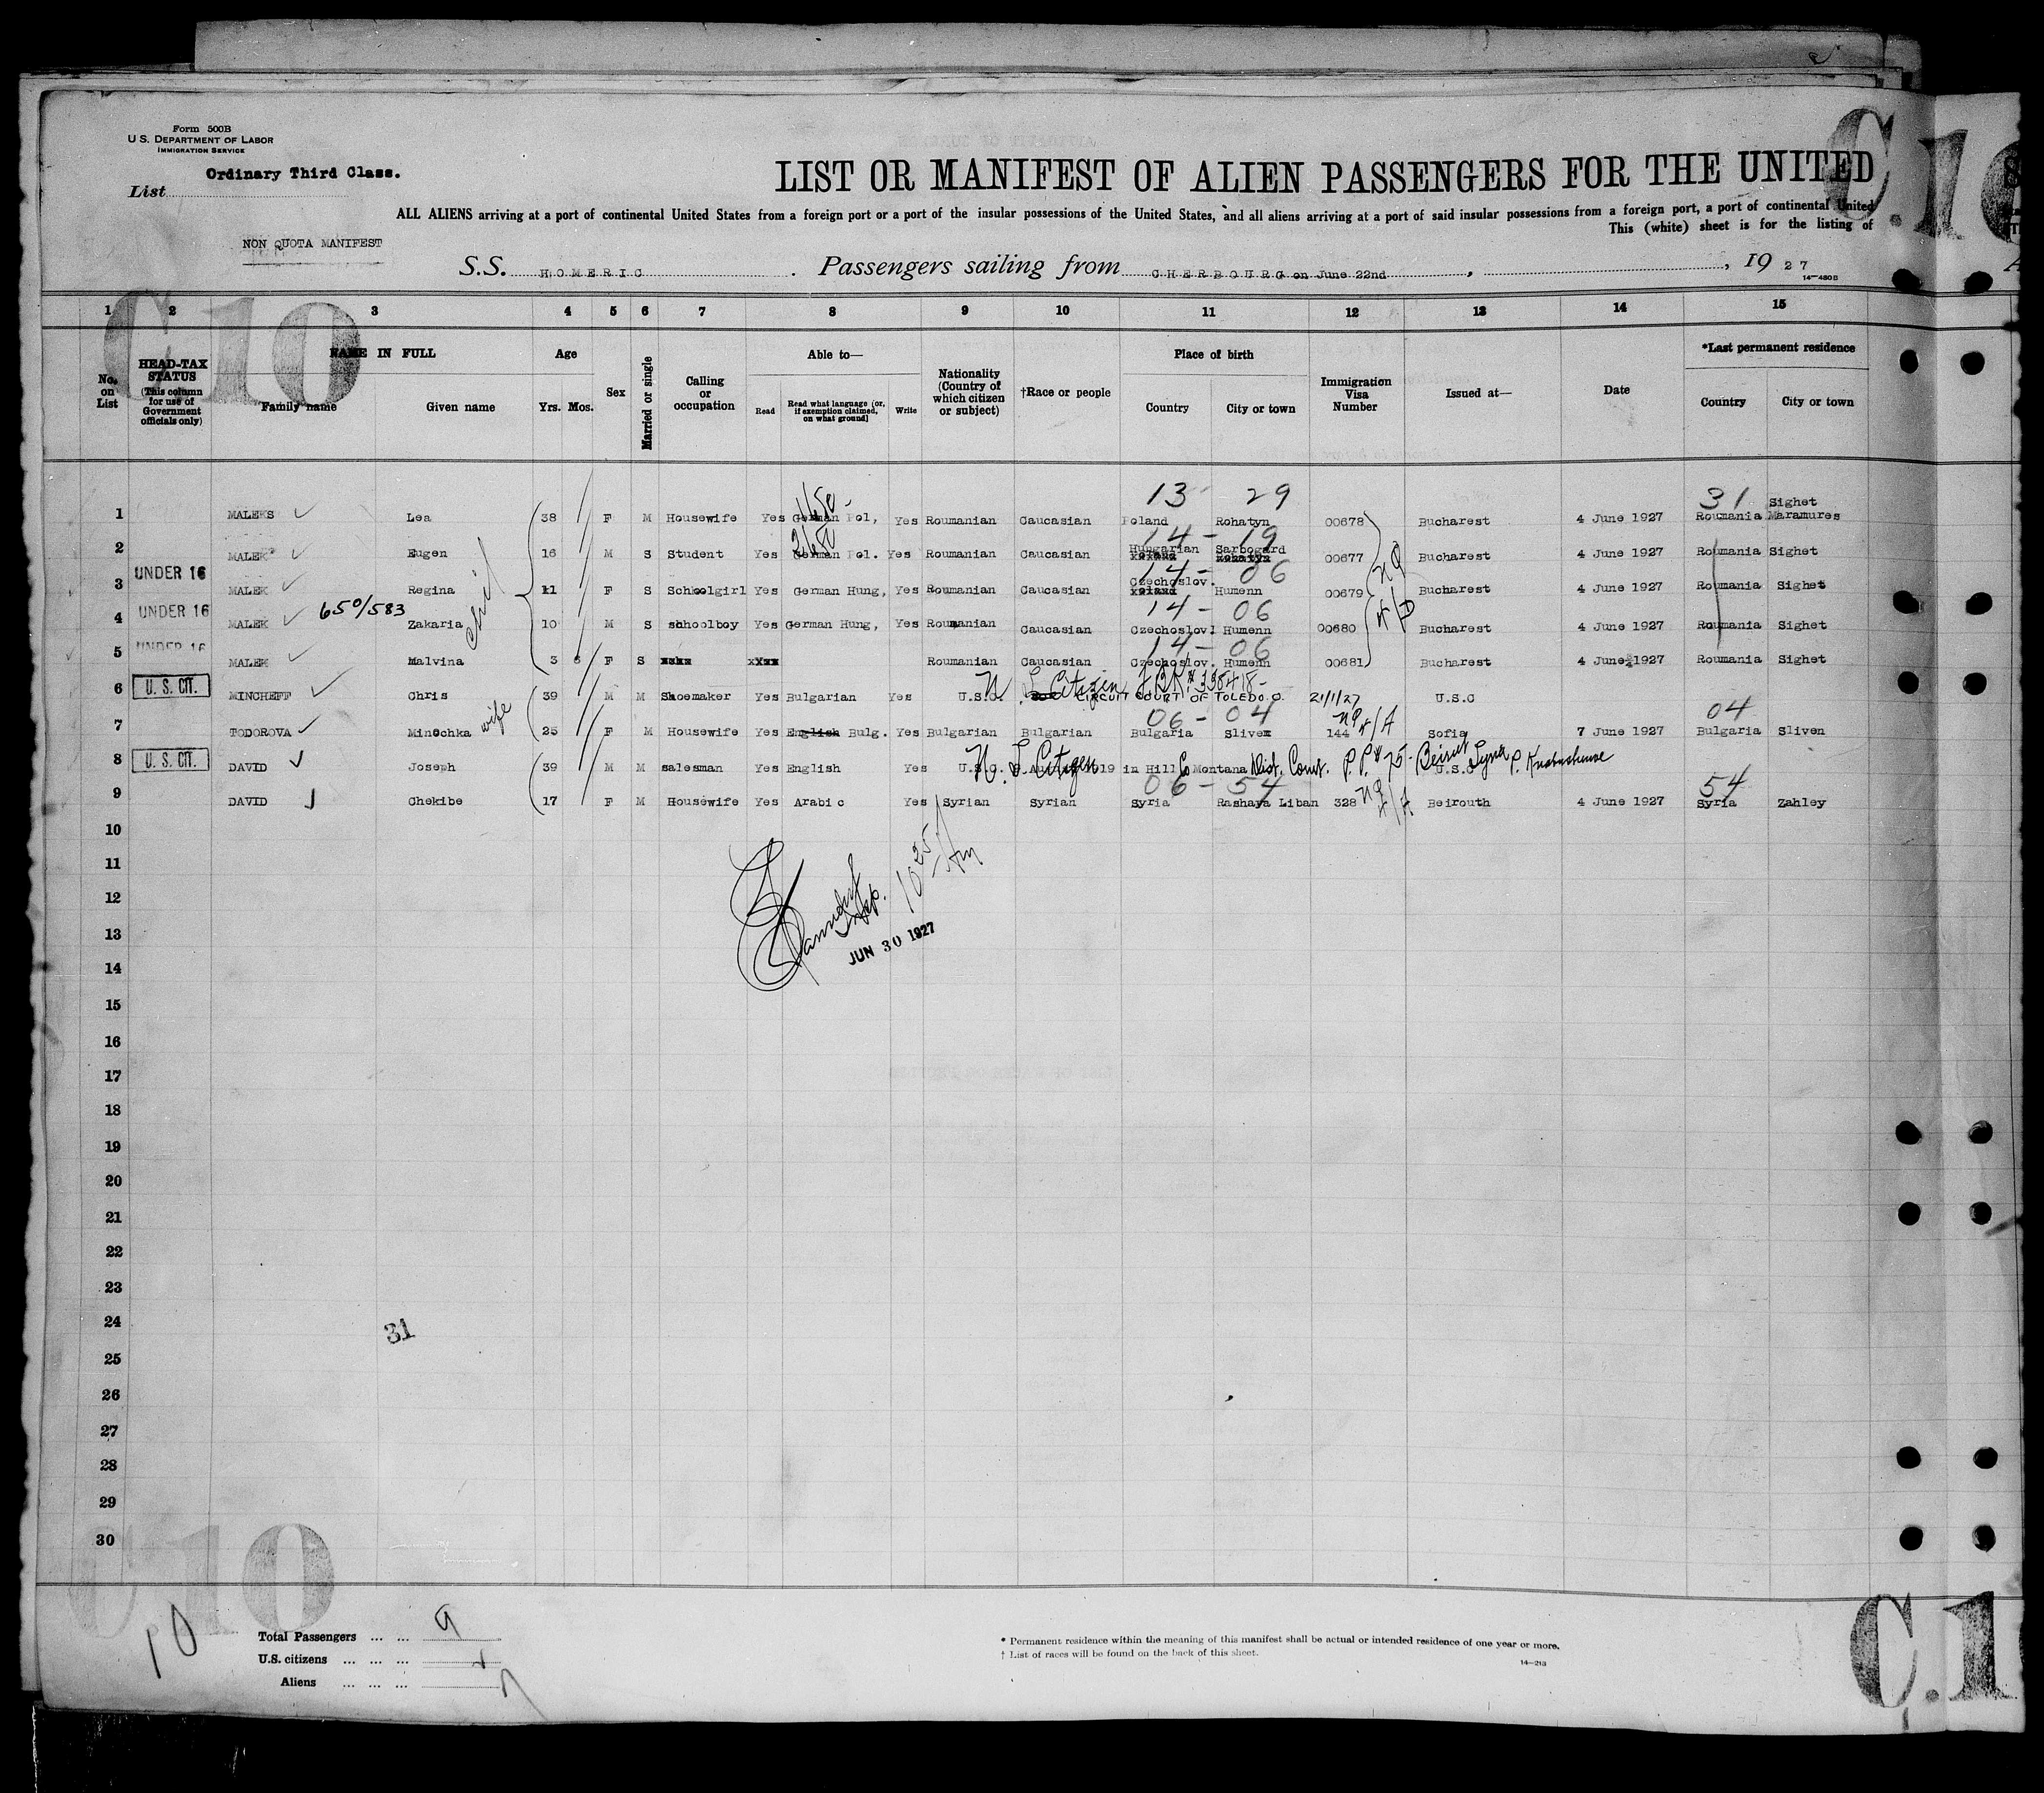 Form 500B
U.S. DEPARTMENT OF LABOR
IMMIGRATION SERVICE
Ordinary Third Class.
List
LIST OR MANIFEST OF ALIEN PASSENGERS FOR THE UNITED
C.10
ALL ALIENS arriving at a port of continental United States from a foreign port or a port of the insular possessions of the United States, and all aliens arriving at a port of said insular possessions from a foreign port, a port of continental United
This (white) sheet is for the listing of
NON QUOTA MANIFEST
S.S. HOMERIC. Passengers sailing from CHERBOURG on June 22nd, , 1927
14-480B
1 2 3 4 5 6 7 8 9 10 11 12 13 14 15
C10
No. on List
HEAD-TAX STATUS (This column for use of Government officials only)
NAME IN FULL
Family name Given name
Age
Yrs. Mos.
Sex
Married or single
Calling or occupation
Able to—
Read Read what language (or, if exemption claimed, on what ground) Write
Nationality (Country of which citizen or subject)
†Race or people
Place of birth
Country City or town
Immigration Visa Number
Issued at—
Date
*Last permanent residence
Country City or town
13 - 29 31 Sighet
1 MALEKS Lea 38 F M Housewife Yes German Pol, Yes Roumanian Caucasian Poland Rohatyn 00678 Bucharest 4 June 1927 Roumania Maramures
14 - 19
Hungarian Sarbogard
2 MALEK Eugen 16 M S Student Yes German Pol. Yes Roumanian Caucasian Poland Rohatyn 00677 Bucharest 4 June 1927 Roumania Sighet
14 - 06
UNDER 16
Czechoslov.
3 MALEK Regina 11 F S Schoolgirl Yes German Hung, Yes Roumanian Caucasian Poland Humenn 00679 Bucharest 4 June 1927 Roumania Sighet
14 - 06
UNDER 16 650/583
4 MALEK Zakaria 10 M S schoolboy Yes German Hung, Yes Roumanian Caucasian Czechoslov. Humenn 00680 Bucharest 4 June 1927 Roumania Sighet
14 - 06
UNDER 16
5 MALEK Malvina 3 6 F S Roumanian Caucasian Czechoslov. Humenn 00681 Bucharest 4 June 1927 Roumania Sighet
6 U.S. CIT. MINCHEFF Chris 39 M M Shoemaker Yes Bulgarian Yes U.S.C. CIRCUIT COURT OF TOLEDO O. 21/1/27 U.S.C
06 - 04 04
7 TODOROVA Minochka wife 25 F M Housewife Yes English Bulg. Yes Bulgarian Bulgarian Bulgaria Sliven 144 Sofia 7 June 1927 Bulgaria Sliven
8 U.S. CIT. DAVID Joseph 39 M M salesman Yes English Yes U.S. Citizen 1919 in Hill Co Montana Dist. Court. P.P.# 75- Beirut Syria U.S.C
06 - 54 54
9 DAVID Chekibe 17 F M Housewife Yes Arabic Yes Syrian Syrian Syria Rashaya Liban 328 Beirouth 4 June 1927 Syria Zahley
10
11
12 Insp. 10 25 Am
13 JUN 30 1927
14
15
16
17
18
19
20
21
22
23
24 31
25
26
27
28
29
30
C10
10
Total Passengers ... ... 9
U.S. citizens ... ... ...
Aliens ... ... ... 7
* Permanent residence within the meaning of this manifest shall be actual or intended residence of one year or more.
† List of races will be found on the back of this sheet.
14-213
C.1